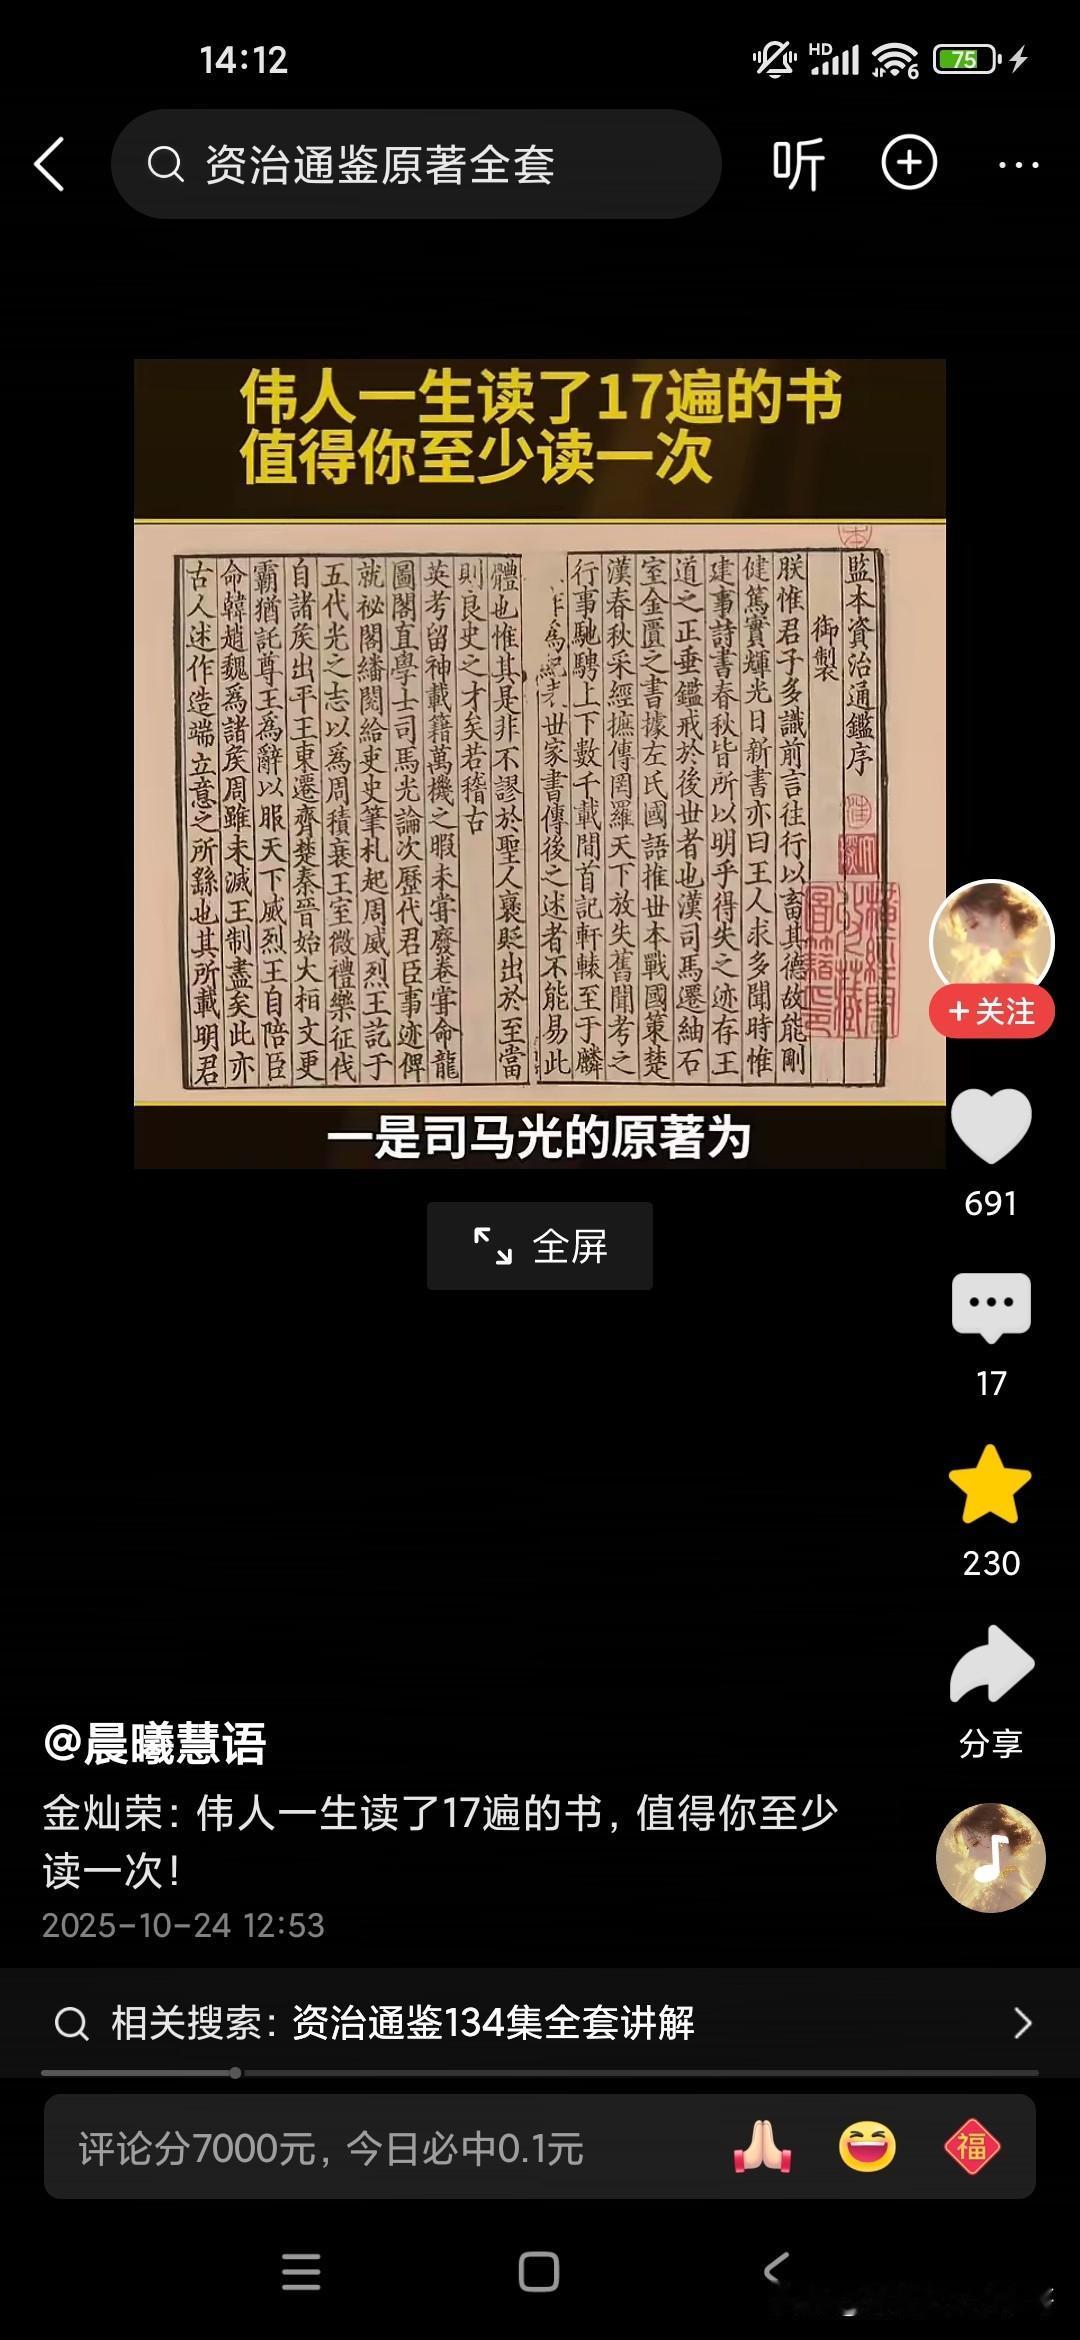 14:12
HD
6
75
资治通鉴原著全套
听
伟人一生读了17遍的书
值得你至少读一次
監本資治通鑑序
御製
朕惟君子多識前言往行以畜其德故能剛
健篤實輝光日新書亦曰王人求多聞時惟
建事詩書春秋皆所以明乎得失之迹存王
道之正垂鑑戒於後世者也漢司馬遷紬石
室金匱之書據左氏國語推世本戰國策楚
漢春秋采經摭傳罔羅天下放失舊聞考之
行事馳騁上下數千載間首記軒轅至于麟
作為紀表世家書傳後之述者不能易此
體也惟其是非不謬於聖人褒貶出於至當
則良史之才矣若稽古
英考留神載籍萬機之暇未甞廢卷甞命龍
圖閣直學士司馬光論次歷代君臣事迹俾
就祕閣繙閱給吏史筆札起周威烈王訖于
五代光之志以為周積衰王室微禮樂征伐
自諸矦出平王東遷齊楚秦晉始大桓文更
霸猶託尊王為辭以服天下威烈王自陪臣
命韓趙魏為諸矦周雖未滅王制盡矣此亦
古人述作造端立意之所繇也其所載明君
一是司马光的原著为
全屏
+关注
691
17
230
分享
@晨曦慧语
金灿荣：伟人一生读了17遍的书，值得你至少
读一次！
2025-10-24 12:53
相关搜索：资治通鉴134集全套讲解
评论分7000元，今日必中0.1元
福